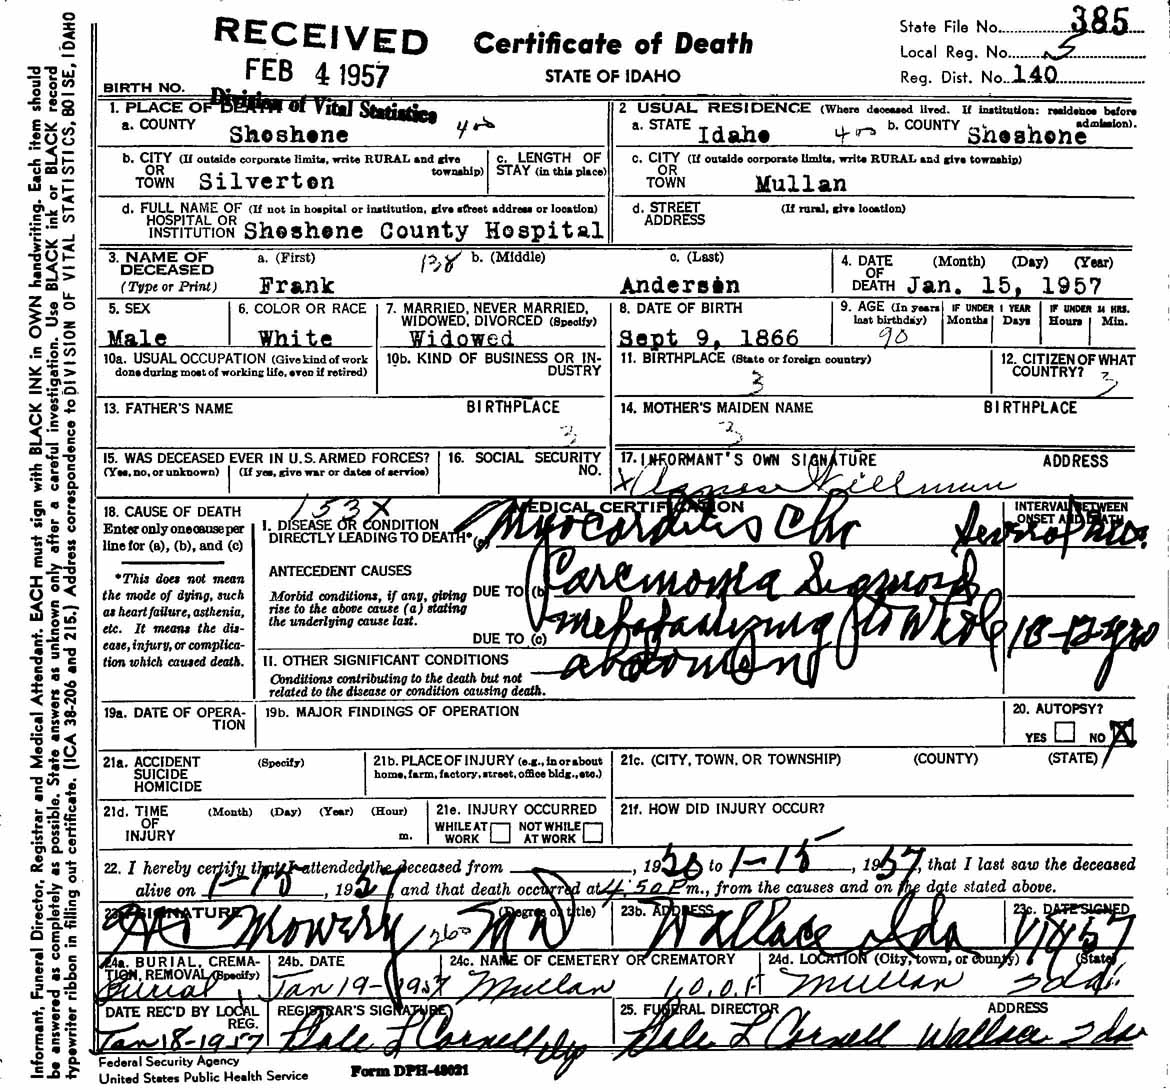 RECEIVED
FEB 4 1957
Division of Vital Statistics
Certificate of Death
STATE OF IDAHO
State File No. 385
Local Reg. No. 5
Reg. Dist. No. 140
BIRTH NO.
1. PLACE OF DEATH
a. COUNTY Shoshone 400
b. CITY (If outside corporate limits, write RURAL and give township) OR TOWN Silverton
c. LENGTH OF STAY (in this place)
d. FULL NAME OF (If not in hospital or institution, give street address or location) HOSPITAL OR INSTITUTION Shoshone County Hospital
2 USUAL RESIDENCE (Where deceased lived. If institution: residence before admission).
a. STATE Idaho 400 b. COUNTY Shoshone
c. CITY (If outside corporate limits, write RURAL and give township) OR TOWN Mullan
d. STREET ADDRESS (If rural, give location)
3. NAME OF DECEASED (Type or Print)
a. (First) Frank 138 b. (Middle) c. (Last) Anderson
4. DATE OF DEATH (Month) (Day) (Year) Jan. 15, 1957
5. SEX Male
6. COLOR OR RACE White
7. MARRIED, NEVER MARRIED, WIDOWED, DIVORCED (Specify) Widowed
8. DATE OF BIRTH Sept 9, 1866
9. AGE (In years last birthday) 90
IF UNDER 1 YEAR Months Days
IF UNDER 24 HRS. Hours Min.
10a. USUAL OCCUPATION (Give kind of work done during most of working life, even if retired)
10b. KIND OF BUSINESS OR INDUSTRY
11. BIRTHPLACE (State or foreign country) 3
12. CITIZEN OF WHAT COUNTRY? 3
13. FATHER'S NAME BIRTHPLACE 3
14. MOTHER'S MAIDEN NAME BIRTHPLACE 3
15. WAS DECEASED EVER IN U.S. ARMED FORCES? (Yes, no, or unknown) (If yes, give war or dates of service)
16. SOCIAL SECURITY NO.
17. INFORMANT'S OWN SIGNATURE ADDRESS
X Agnes Hillman
18. CAUSE OF DEATH
Enter only one cause per line for (a), (b), and (c)
*This does not mean the mode of dying, such as heart failure, asthenia, etc. It means the disease, injury, or complication which caused death.
MEDICAL CERTIFICATION
153X
INTERVAL BETWEEN ONSET AND DEATH
I. DISEASE OR CONDITION DIRECTLY LEADING TO DEATH* (a) Myocarditis Chr Several Mo.
ANTECEDENT CAUSES
Morbid conditions, if any, giving rise to the above cause (a) stating the underlying cause last.
DUE TO (b) Carcinoma Sigmoid
DUE TO (c) metastasizing to whole abdomen
II. OTHER SIGNIFICANT CONDITIONS
Conditions contributing to the death but not related to the disease or condition causing death.
19a. DATE OF OPERATION
19b. MAJOR FINDINGS OF OPERATION
20. AUTOPSY?
YES NO X
21a. ACCIDENT SUICIDE HOMICIDE (Specify)
21b. PLACE OF INJURY (e.g., in or about home, farm, factory, street, office bldg., etc.)
21c. (CITY, TOWN, OR TOWNSHIP) (COUNTY) (STATE)
21d. TIME OF INJURY (Month) (Day) (Year) (Hour) m.
21e. INJURY OCCURRED WHILE AT WORK NOT WHILE AT WORK
21f. HOW DID INJURY OCCUR?
22. I hereby certify that I attended the deceased from , 1950 to 1-15, 1957, that I last saw the deceased
alive on 1-15, 1957 and that death occurred at 4:50 P m., from the causes and on the date stated above.
23a. SIGNATURE (Degree or title) Mowery 260 MD
23b. ADDRESS Wallace Ida
23c. DATE SIGNED
24a. BURIAL, CREMATION, REMOVAL (Specify) Burial
24b. DATE Jan 19-1957
24c. NAME OF CEMETERY OR CREMATORY Mullan I.O.O.F
24d. LOCATION (City, town, or county) (State) Mullan Ida.
DATE REC'D BY LOCAL REG. Jan 18-1957
REGISTRAR'S SIGNATURE Dale L Cornell dep
25. FUNERAL DIRECTOR ADDRESS
Dale L Cornell Wallace Ida
Federal Security Agency
United States Public Health Service
Form DPH-48021
Informant, Funeral Director, Registrar and Medical Attendant. EACH must sign with BLACK INK in OWN handwriting. Each item should
be answered as completely as possible. State answers as unknown only after a careful investigation. Use BLACK ink or BLACK record
typewriter ribbon in filling out certificate. (ICA 38-206 and 215.) Address correspondence to DIVISION OF VITAL STATISTICS, BOISE, IDAHO